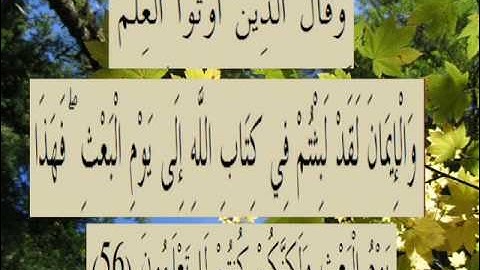 وَقَالَ الَّذِينَ أُوتُوا الْعِلْمَ
وَالْإِيمَانَ لَقَدْ لَبِثْتُمْ فِي كِتَابِ اللَّهِ إِلَى يَوْمِ الْبَعْثِ ۖ فَهَذَا
يَوْمُ الْبَعْثِ وَلَكِنَّكُمْ كُنْتُمْ لَا تَعْلَمُونَ (56)